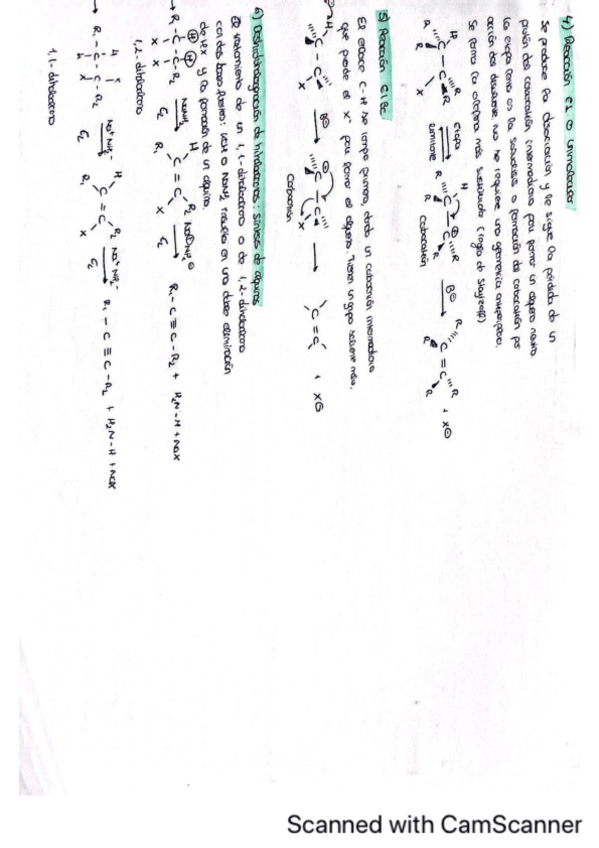 4) Reacción E1 o Unimolecular
Se produce la disociación y le sigue la pérdida de un
protón del carbocatión intermediario para formar un alqueno neutro
la etapa lenta es la solvólisis o formación de carbocatión por
acción del disolvente. No se requiere una geometría antiperiplanar.
Se forma la olefina más sustituida (regla de Saytzeff)
etapa
limitante
Carbocatión
5) Reacción E1Bc
El enlace C-H se rompe primero, dando un carbanión intermediario
que pierde el X⁻ para formar el alqueno.
Carbanión
6) Deshidrohalogenación de dihaloalcanos: síntesis de alquinos
El tratamiento de un 1,1-dihaloalcano o de 1,2-dihaloalcano
con dos bases fuertes: KOH o NaNH₂ resulta en una doble eliminación
de HX y la formación de un alquino.
R₁ - C - C - R₂ NaNH₂ E₂ R₁ C = C R₂ Na⊕NH₂⊖ E₂ R₁ - C ≡ C - R₂ + H₂N - H + NaX
1,2-dihaloalcano
R₁ - C - C - R₂ Na⁺NH₂⁻ E₂ R₁ C = C R₂ Na⁺NH₂⁻ E₂ R₁ - C ≡ C - R₂ + H₂N - H + NaX
1,1-dihaloalcano
Scanned with CamScanner